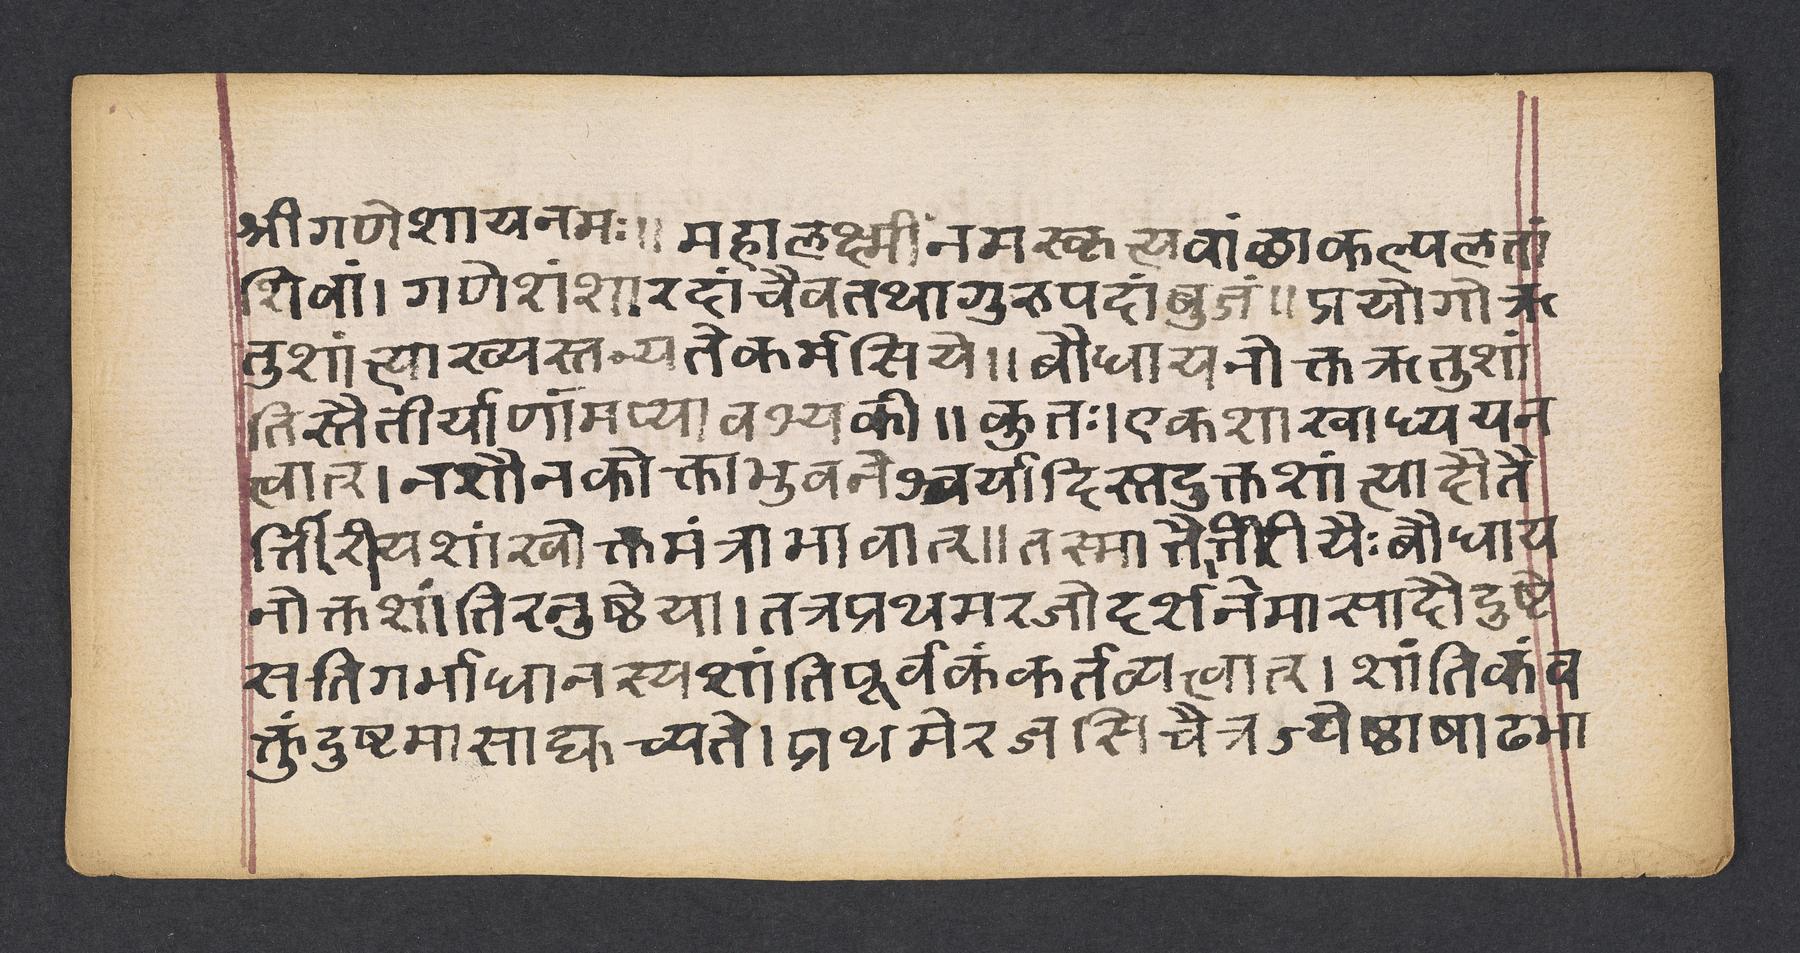 श्रीगणेशायनमः॥ महालक्ष्मींनमस्कृत्यवांछाकल्पलतां
शिवां। गणेशंशारदांचैवतथागुरुपदांबुजं॥ प्रयोगोऋ
तुशांत्याख्यस्तन्यतेकर्मसिधये॥ बौधायनोक्तऋतुशां
तिस्तैतीर्याणांमप्यावश्यकी॥ कुतः।एकशाखाध्ययन
त्वात्। नशौनकोक्ताभुवनेश्वर्यादिस्तदुक्तशांत्यादौतै
र्त्तिरीयशांखोक्तमंत्राभावात्॥तस्मात्तैर्त्तिरीयैःबौधाय
नोक्तशांतिरनुष्ठेया। तत्रप्रथमरजोदर्शनेमासादौदुष्टे
सतिगर्भाधानस्यशांतिपूर्वकंकर्तव्यत्वात्। शांतिकंव
क्तुंदुष्टमासाद्युच्यते। प्रथमेरजसिचैत्रज्येष्ठाषाढभा